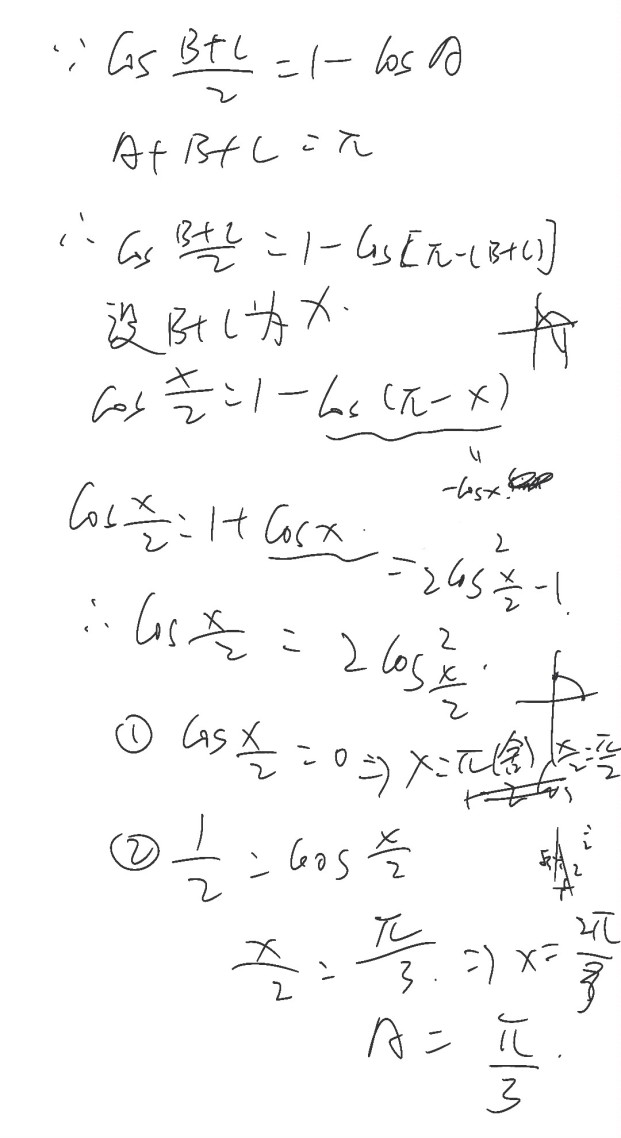 ∵ cos (B+C)/2 = 1 - cos A
A + B + C = π
∴ cos (B+C)/2 = 1 - cos[π-(B+C)]
设 B+C为 x.
cos x/2 = 1 - cos (π - x)
-cosx
cos x/2 = 1 + cosx.
= 2cos² x/2 - 1.
∴ cos x/2 = 2 cos² x/2.
① cos x/2 = 0 ⇒ x = π (舍) x/2 = π/2
② 1/2 = cos x/2
x/2 = π/3. ⇒ x = 2π/3
A = π/3.